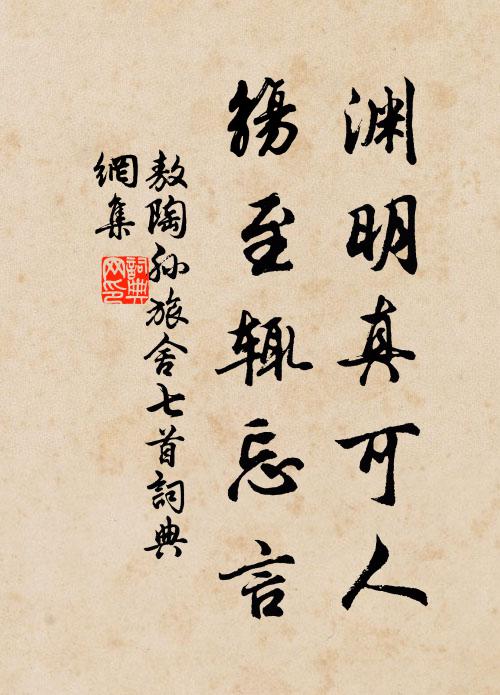 渊明真可人
觞至辄忘言
敖陶孙旅舍七首詞典
網集
詞典
网印